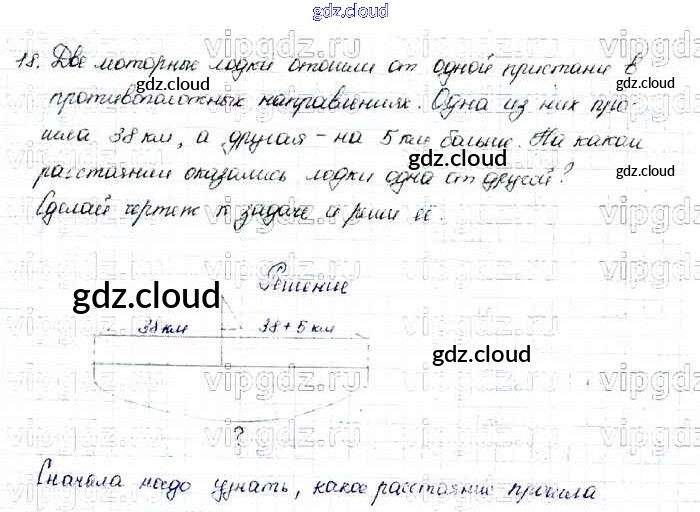 gdz.cloud
18. Две моторные лодки отошли от одной пристани в
противоположных направлениях. Одна из них про-
шла 38 км, а другая - на 5 км больше. На каком
gdz.cloud
gdz.cloud
gdz.cloud
расстоянии оказались лодки одна от другой?
gdz.cloud
Сделай чертеж к задаче и реши её.
Решение
gdz.cloud
38 км 38 + 5 км
gdz.cloud
?
Сначала надо узнать, какое расстояние прошла